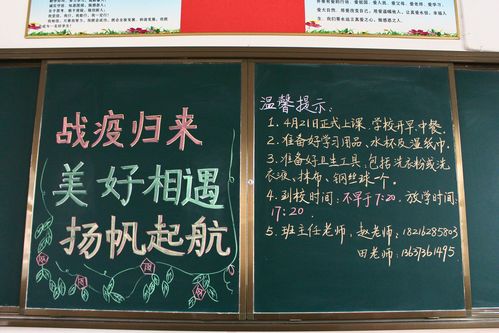 战疫归来
美好相遇
扬帆起航
温馨提示:
1、4月21日正式上课,学校开早、中餐。
2、准备好学习用品、水杯及湿纸巾。
3、准备好卫生工具,包括洗衣粉或洗
衣液、抹布、钢丝球一个。
4、到校时间:不早于7:20,放学时间:
17:20.
5、班主任老师:赵老师:18216285803
田老师:13637361495